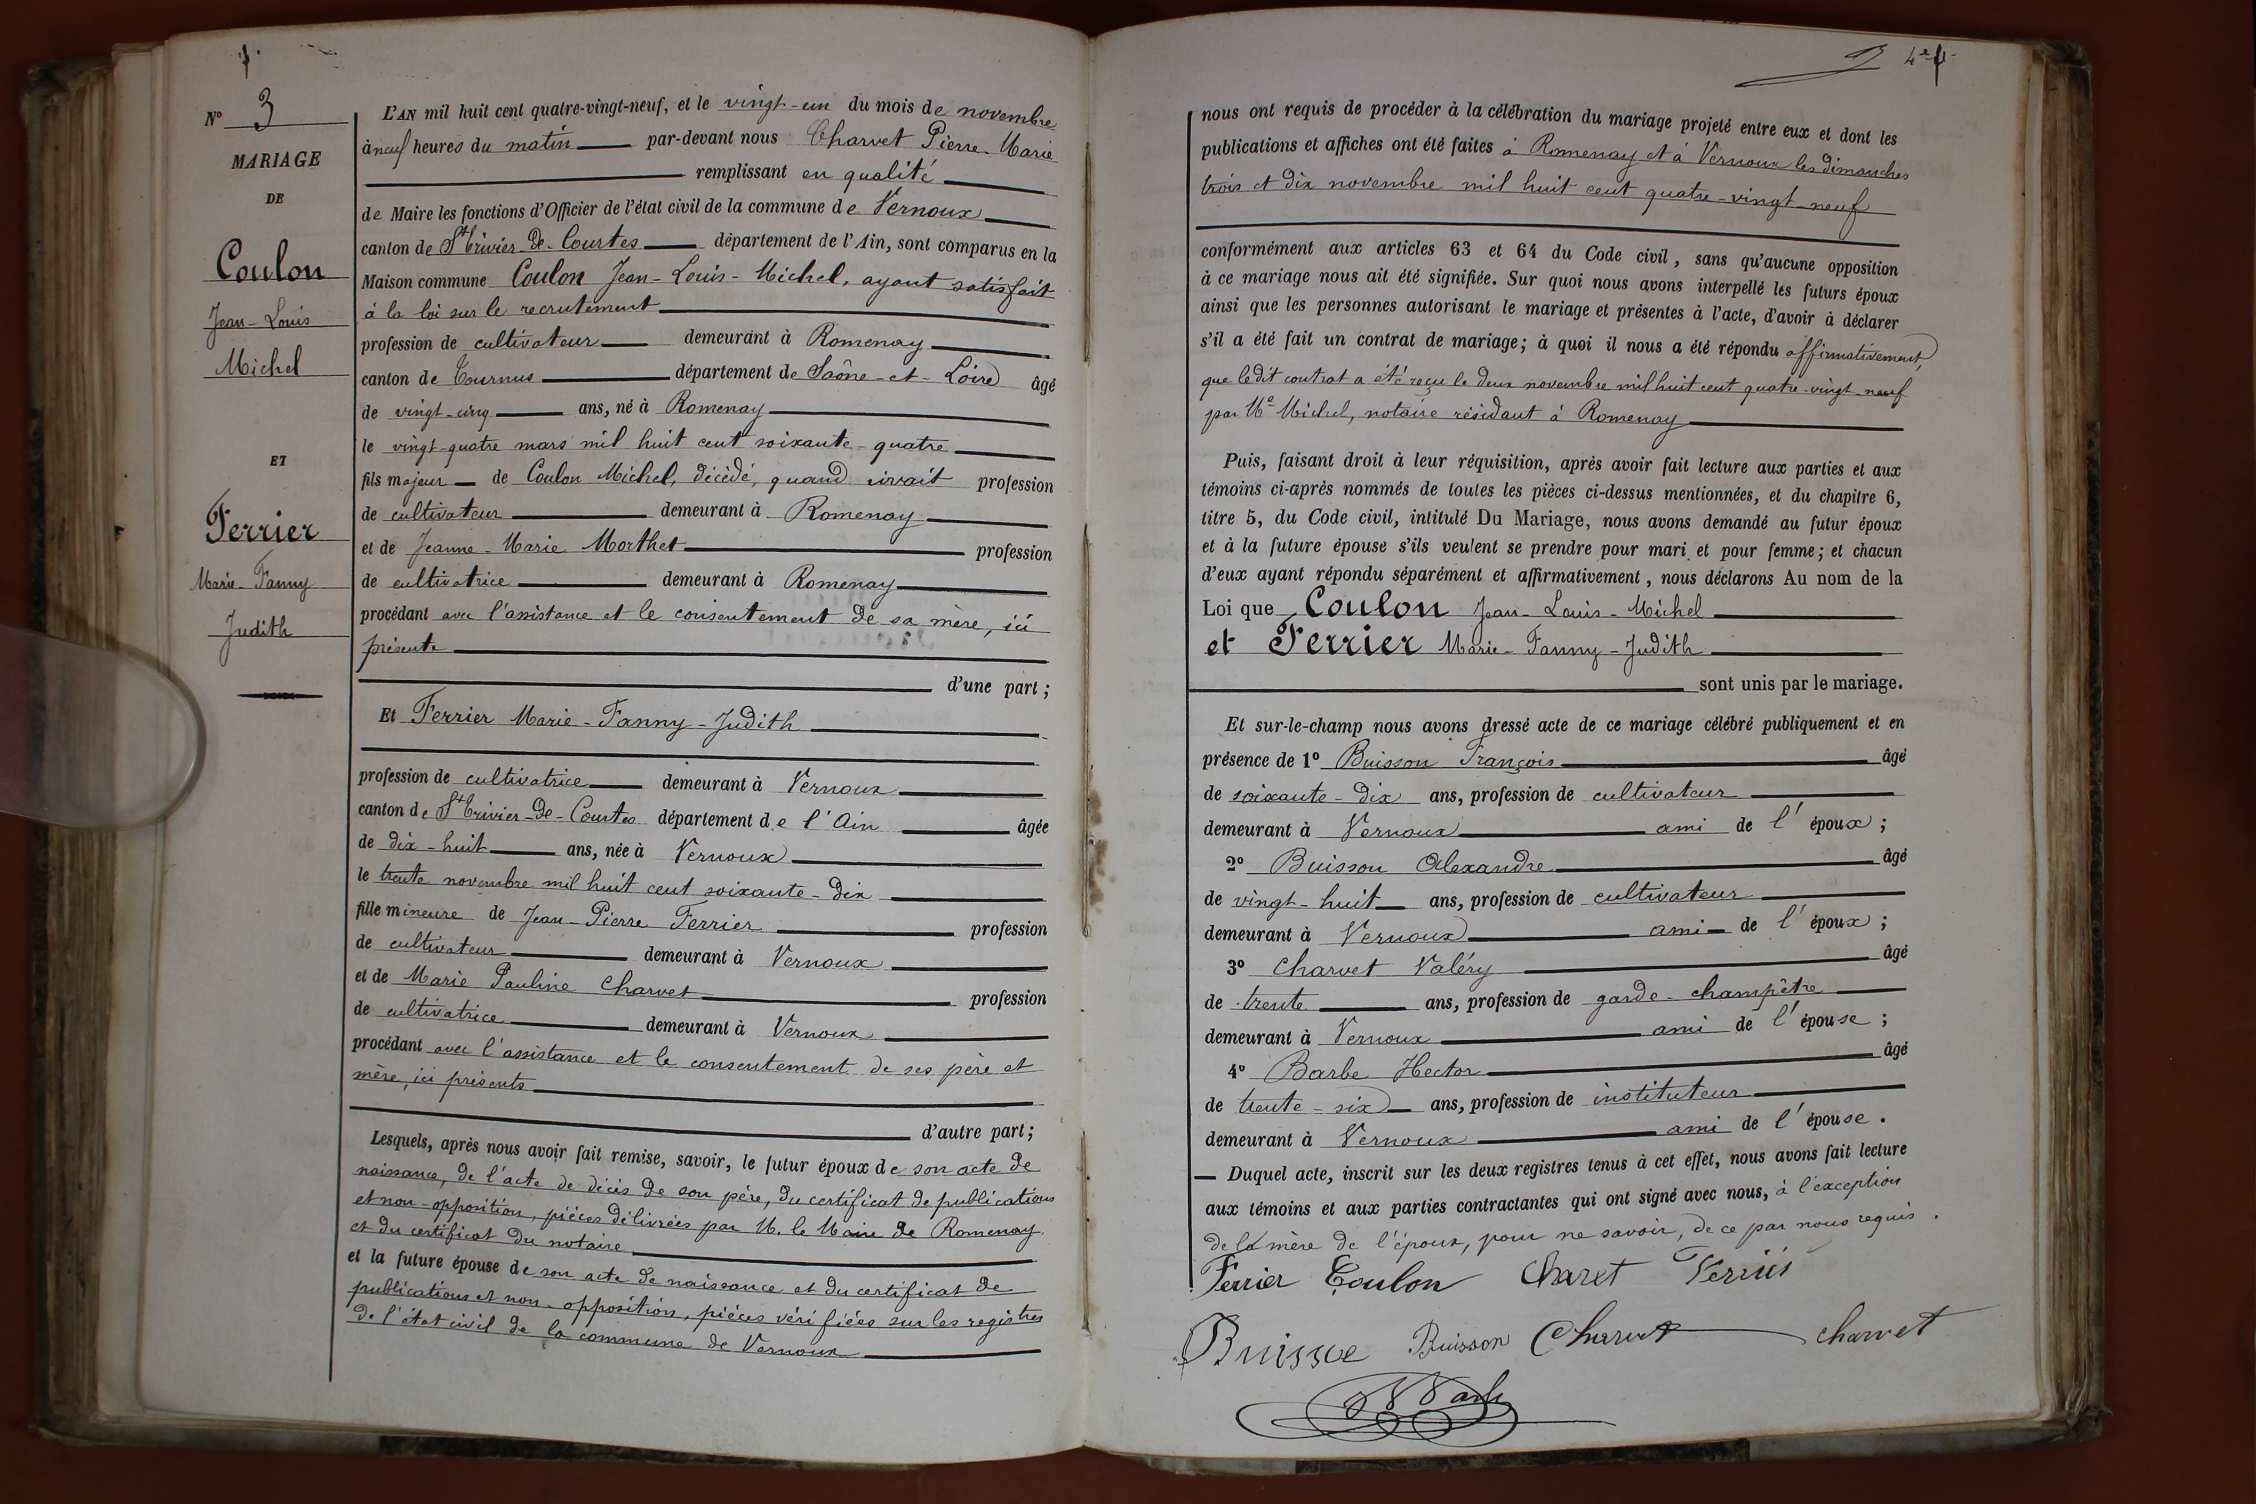 Nº 3
MARIAGE
DE
Coulon
Jean-Louis
Michel
ET
Ferrier
Marie-Fanny
Judith
L'AN mil huit cent quatre-vingt-neuf, et le vingt-un du mois de novembre
à neuf heures du matin par-devant nous Charvet Pierre-Marie
remplissant en qualité
de Maire les fonctions d'Officier de l'état civil de la commune de Vernoux
canton de St Trivier-de-Courtes département de l'Ain, sont comparus en la
Maison commune Coulon Jean-Louis-Michel, ayant satisfait
à la loi sur le recrutement
profession de cultivateur demeurant à Romenay
canton de Tournus département de Saône-et-Loire âgé
de vingt-cinq ans, né à Romenay
le vingt-quatre mars mil huit cent soixante-quatre
fils majeur de Coulon Michel, décédé, quand vivait profession
de cultivateur demeurant à Romenay
et de Jeanne-Marie Morthet profession
de cultivatrice demeurant à Romenay
procédant avec l'assistance et le consentement de sa mère, ici
présente
d'une part;
Et Ferrier Marie-Fanny-Judith
profession de cultivatrice demeurant à Vernoux
canton de St Trivier-de-Courtes département de l'Ain âgée
de dix-huit ans, née à Vernoux
le trente novembre mil huit cent soixante-dix
fille mineure de Jean-Pierre Ferrier profession
de cultivateur demeurant à Vernoux
et de Marie Pauline Charvet profession
de cultivatrice demeurant à Vernoux
procédant avec l'assistance et le consentement de ses père et
mère, ici présents
d'autre part;
Lesquels, après nous avoir fait remise, savoir, le futur époux de son acte de
naissance, de l'acte de décès de son père, du certificat de publications
et non-opposition, pièces délivrées par M. le Maire de Romenay
et du certificat du notaire
et la future épouse de son acte de naissance et du certificat de
publications et non-opposition, pièces vérifiées sur les registres
de l'état civil de la commune de Vernoux
nous ont requis de procéder à la célébration du mariage projeté entre eux et dont les
publications et affiches ont été faites à Romenay et à Vernoux les dimanches
trois et dix novembre mil huit cent quatre-vingt-neuf
conformément aux articles 63 et 64 du Code civil, sans qu'aucune opposition
à ce mariage nous ait été signifiée. Sur quoi nous avons interpellé les futurs époux
ainsi que les personnes autorisant le mariage et présentes à l'acte, d'avoir à déclarer
s'il a été fait un contrat de mariage; à quoi il nous a été répondu affirmativement,
que ledit contrat a été reçu le deux novembre mil huit cent quatre-vingt-neuf
par Me Michel, notaire résidant à Romenay
Puis, faisant droit à leur réquisition, après avoir fait lecture aux parties et aux
témoins ci-après nommés de toutes les pièces ci-dessus mentionnées, et du chapitre 6,
titre 5, du Code civil, intitulé Du Mariage, nous avons demandé au futur époux
et à la future épouse s'ils veulent se prendre pour mari et pour femme; et chacun
d'eux ayant répondu séparément et affirmativement, nous déclarons Au nom de la
Loi que Coulon Jean-Louis-Michel
et Ferrier Marie-Fanny-Judith
sont unis par le mariage.
Et sur-le-champ nous avons dressé acte de ce mariage célébré publiquement et en
présence de 1º Buisson François âgé
de soixante-dix ans, profession de cultivateur
demeurant à Vernoux ami de l'époux;
2º Buisson Alexandre âgé
de vingt-huit ans, profession de cultivateur
demeurant à Vernoux ami de l'époux;
3º Charvet Valéry âgé
de trente ans, profession de garde-champêtre
demeurant à Vernoux ami de l'épouse;
4º Barbe Hector âgé
de trente-six ans, profession de instituteur
demeurant à Vernoux ami de l'épouse.
— Duquel acte, inscrit sur les deux registres tenus à cet effet, nous avons fait lecture
aux témoins et aux parties contractantes qui ont signé avec nous, à l'exception
de la mère de l'époux, pour ne savoir, de ce par nous requis.
Ferrier Coulon Charet
Buisson Charvet charvet